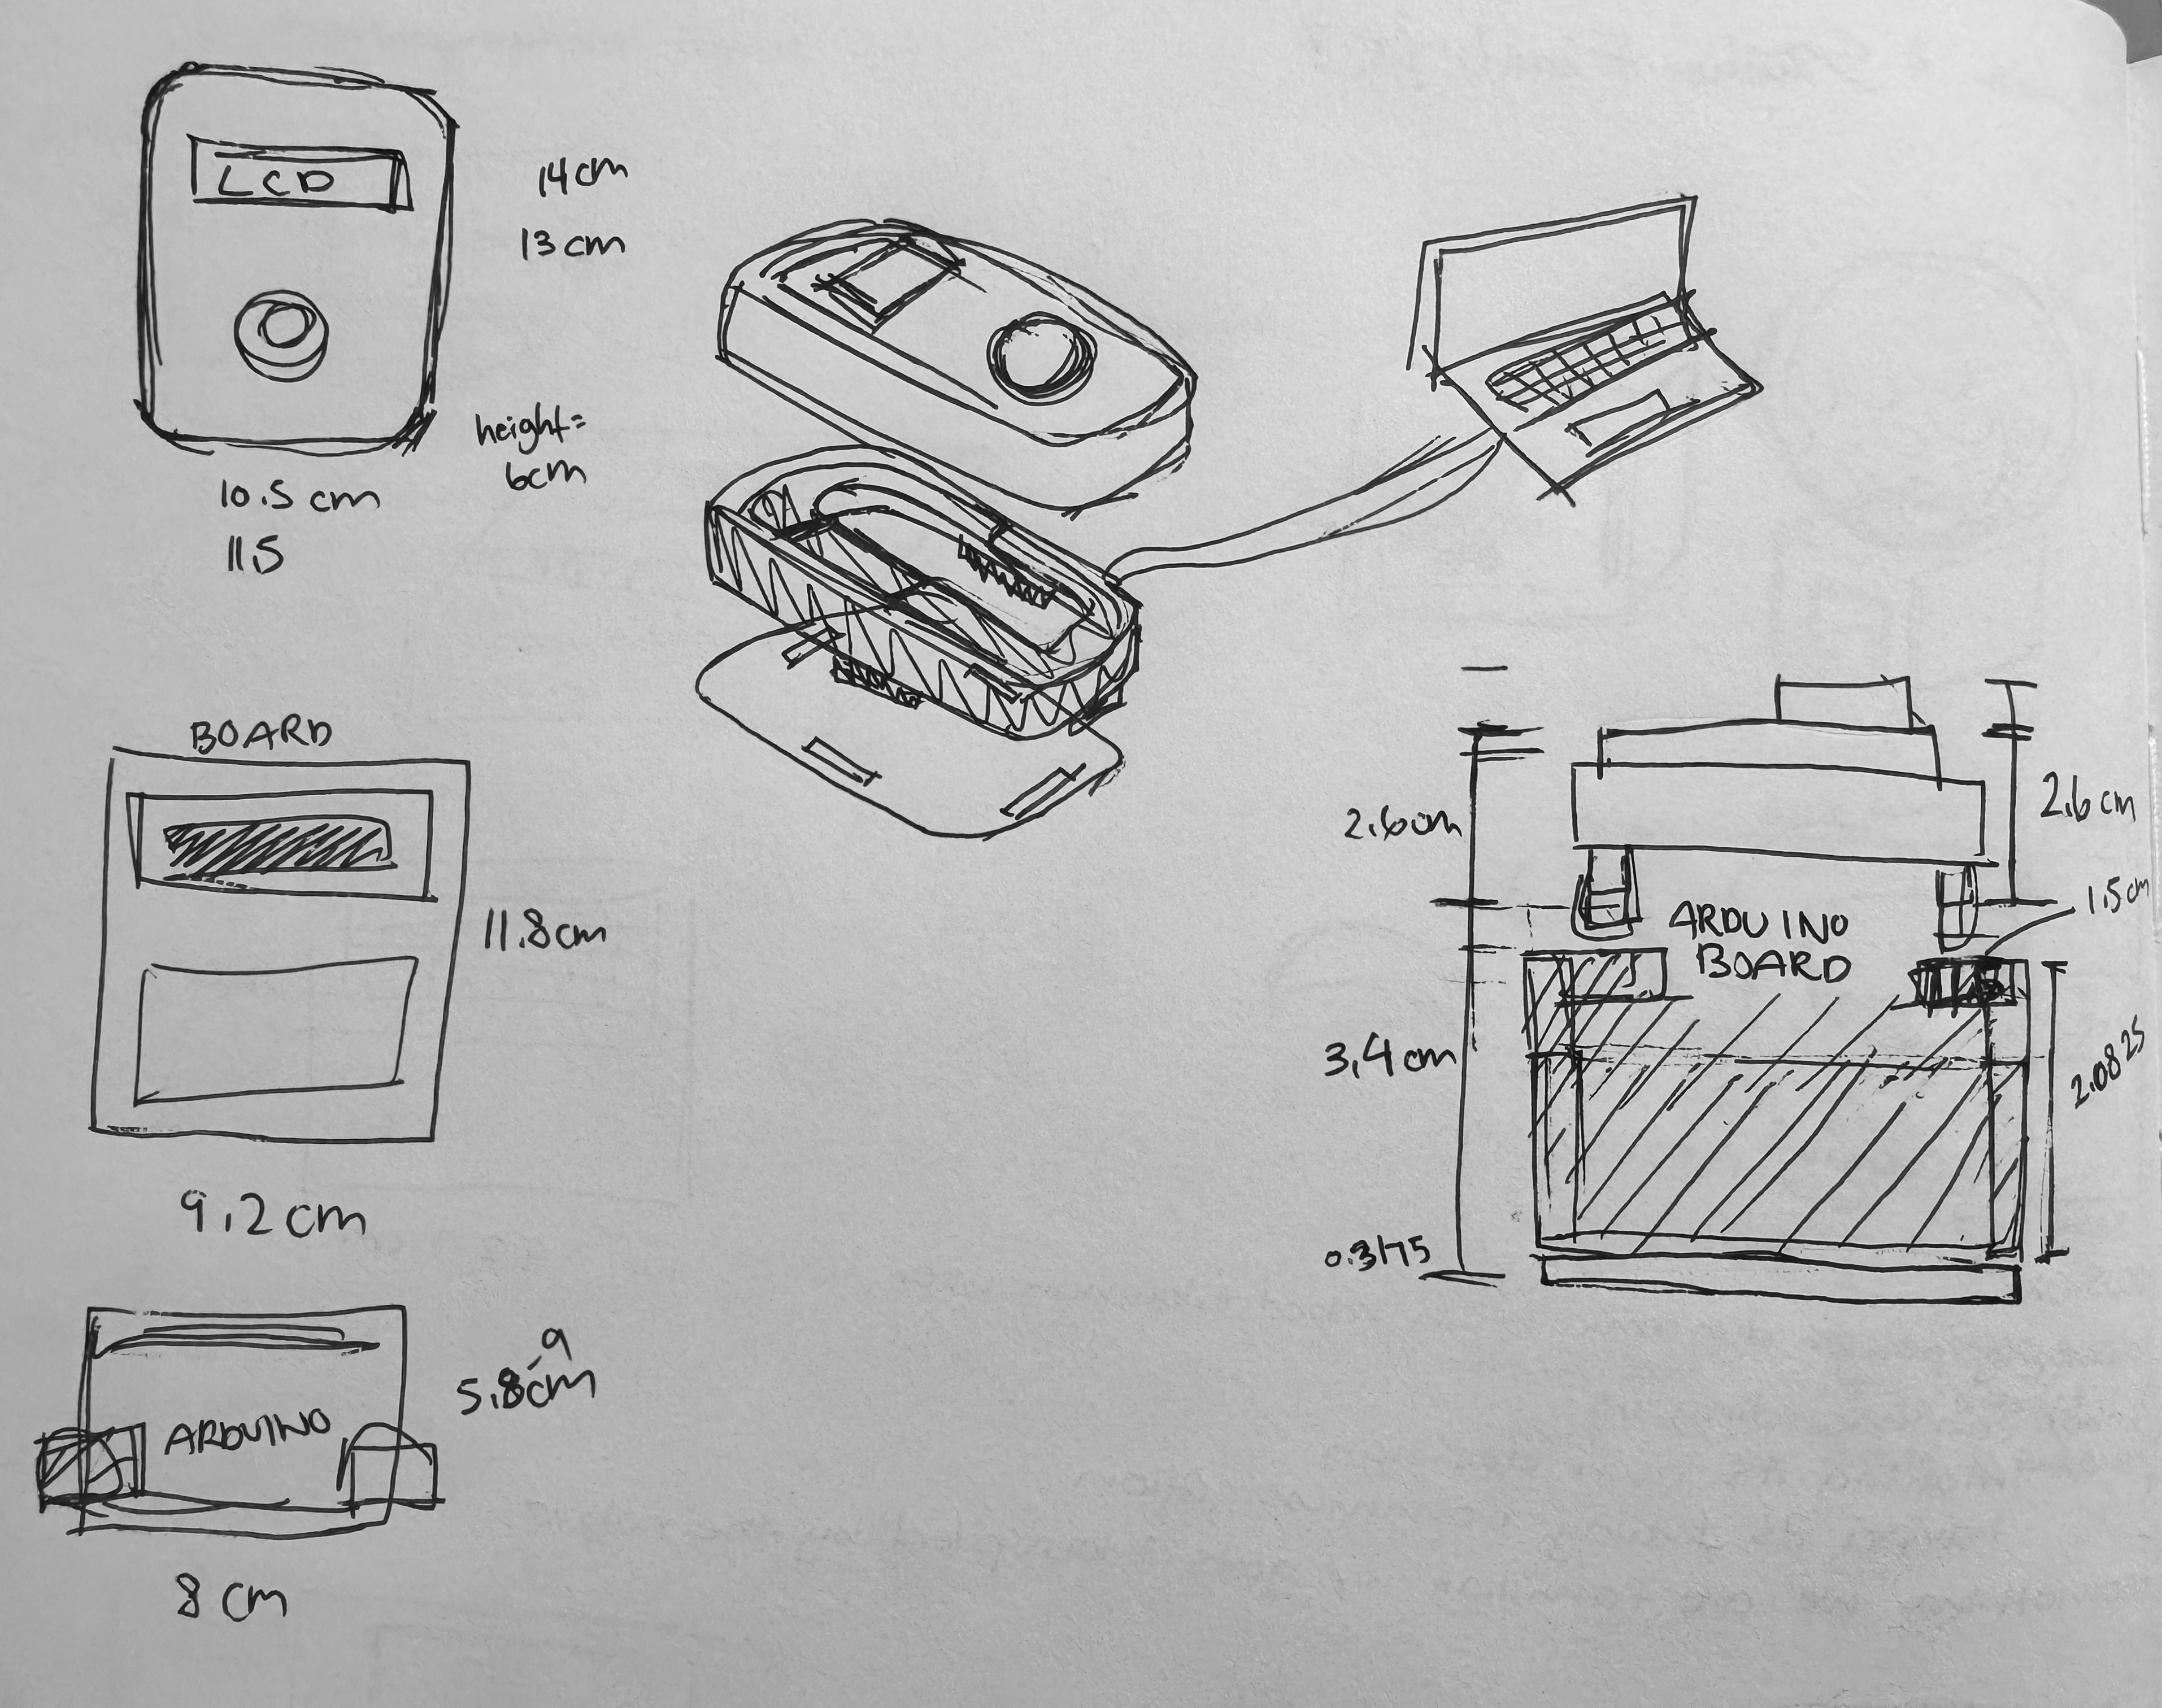 LCD
14cm
13cm
height=
6cm
10.5 cm
11.5
BOARD
11.8cm
9.2cm
ARDUINO
5.8cm
9
8 cm
2.6cm
2.6cm
1.5cm
ARDUINO
BOARD
3,4cm
2.0825
0.3175